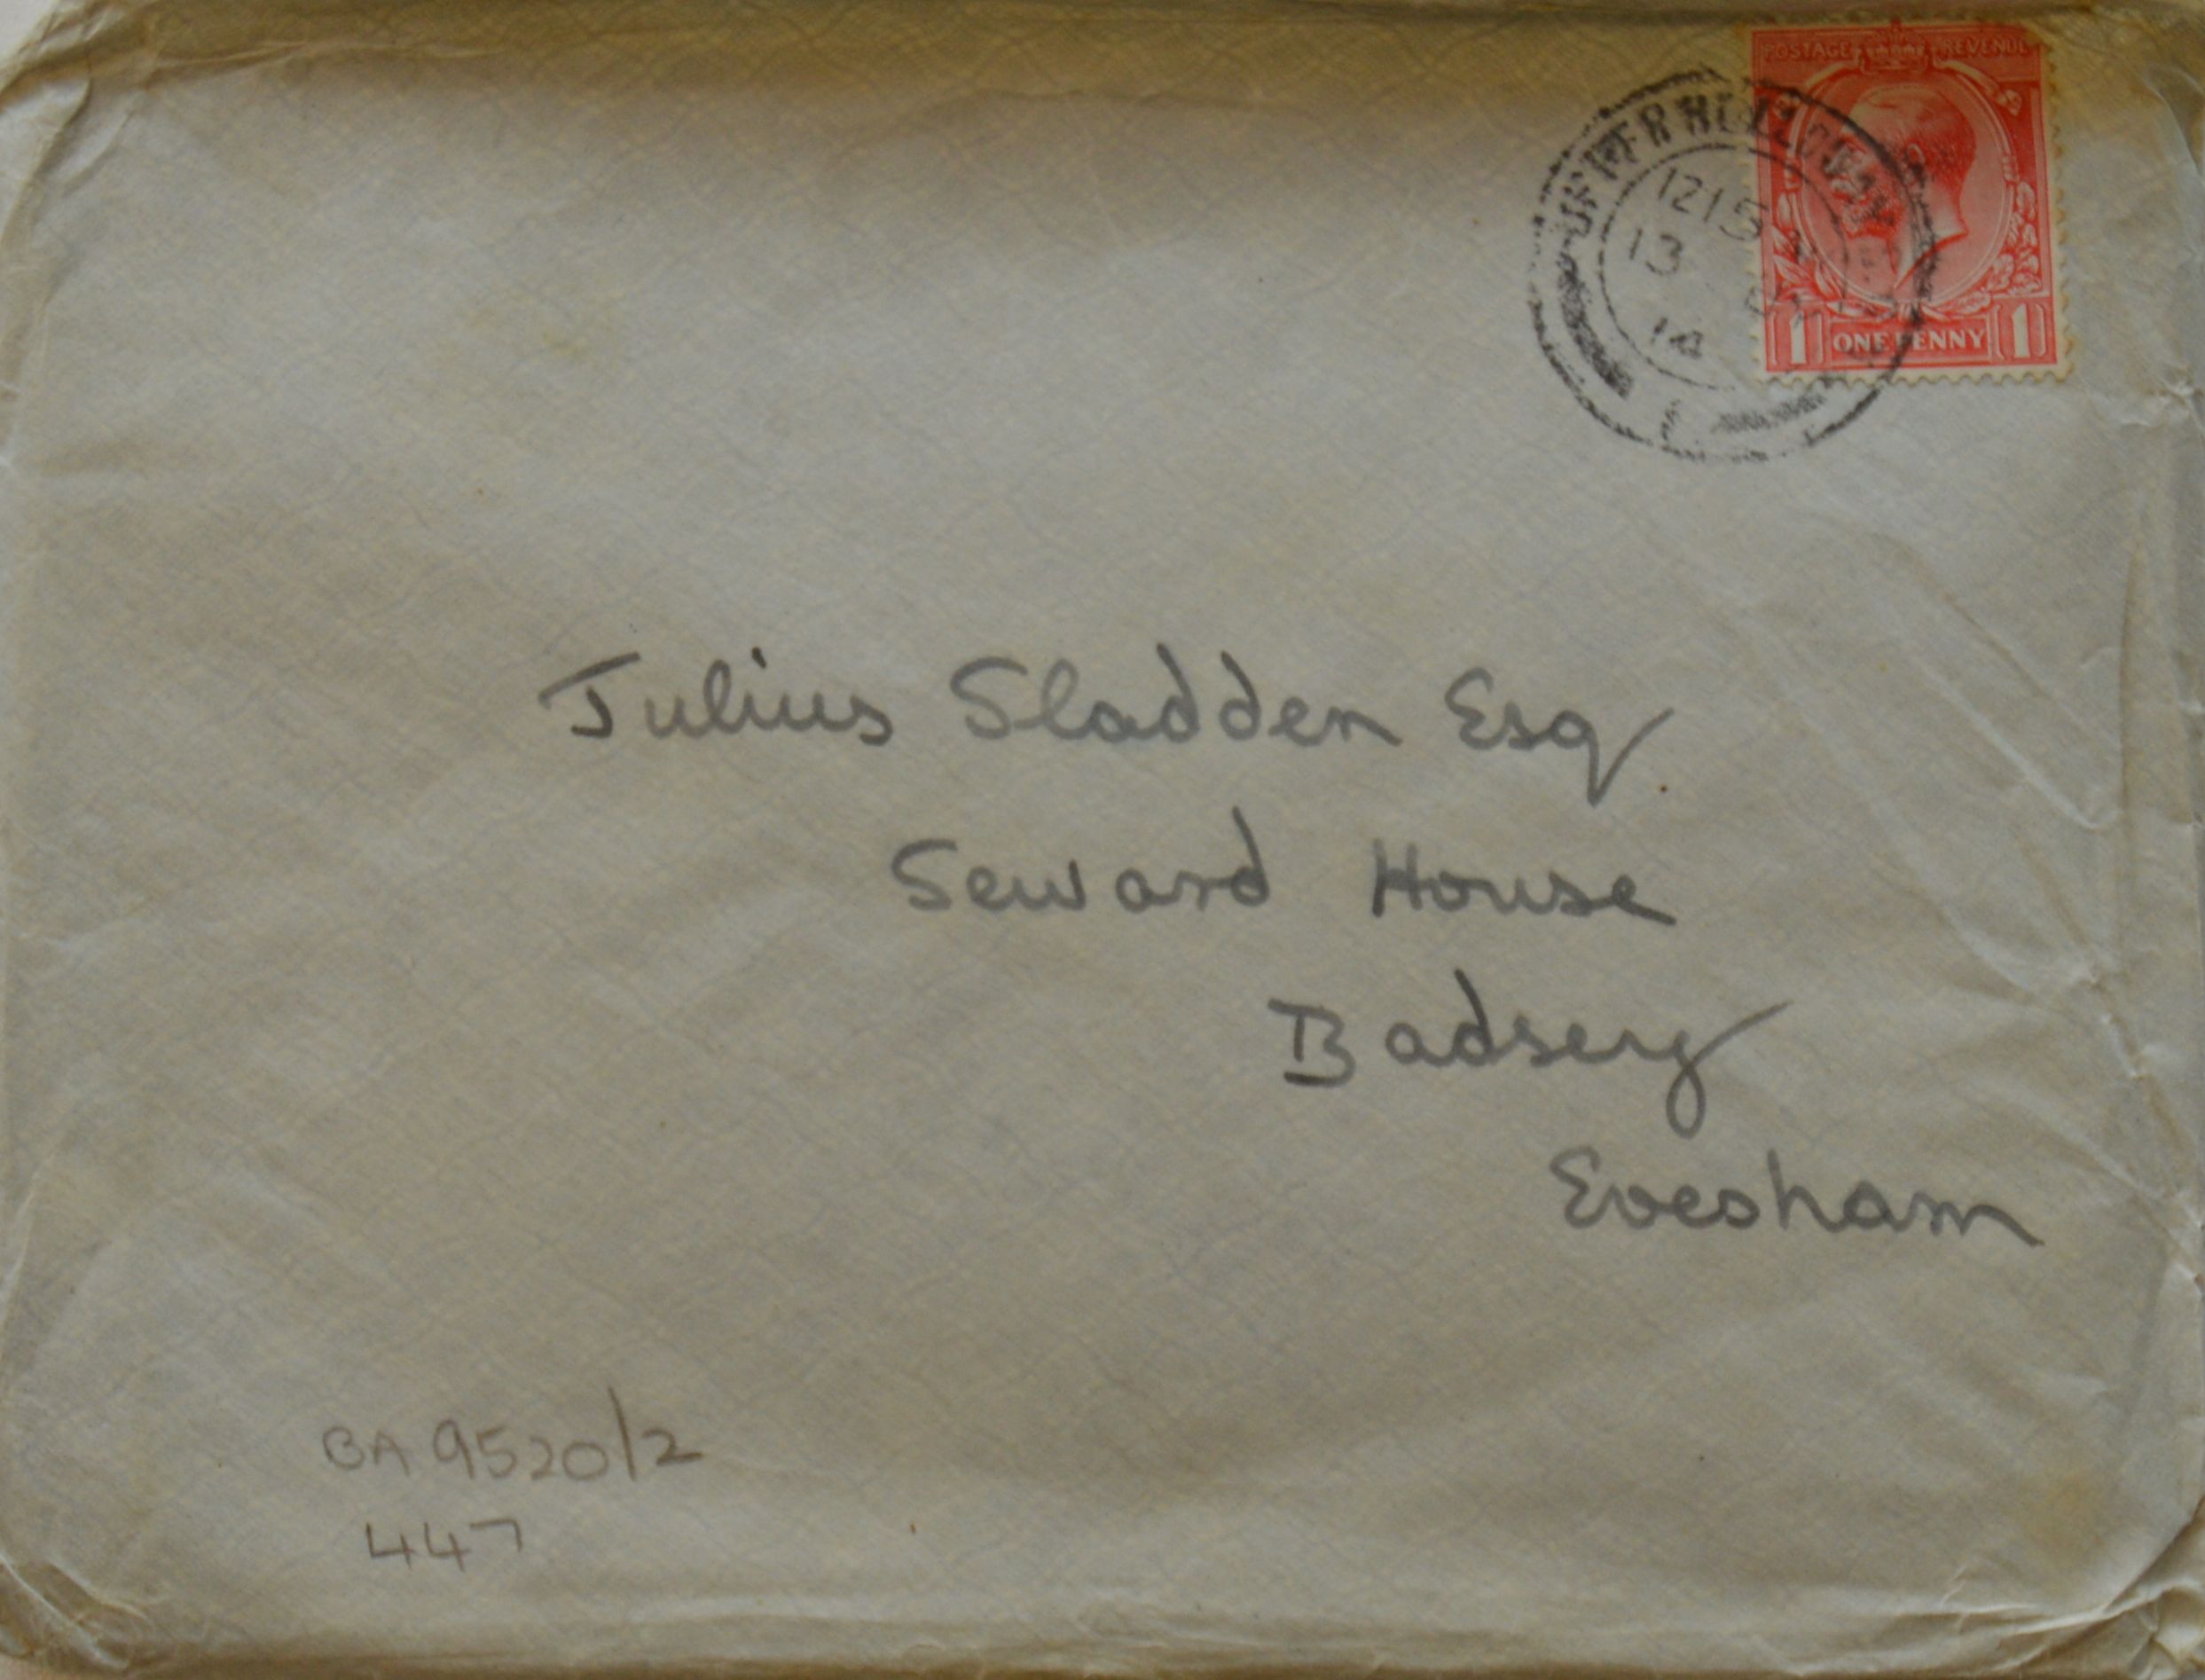 POSTAGE REVENUE
UPPER HOLLOWAY
1215
13
14
1 ONE PENNY 1
Julius Sladden Esq
Seward House
Badsey
Evesham
BA 9520/2
447